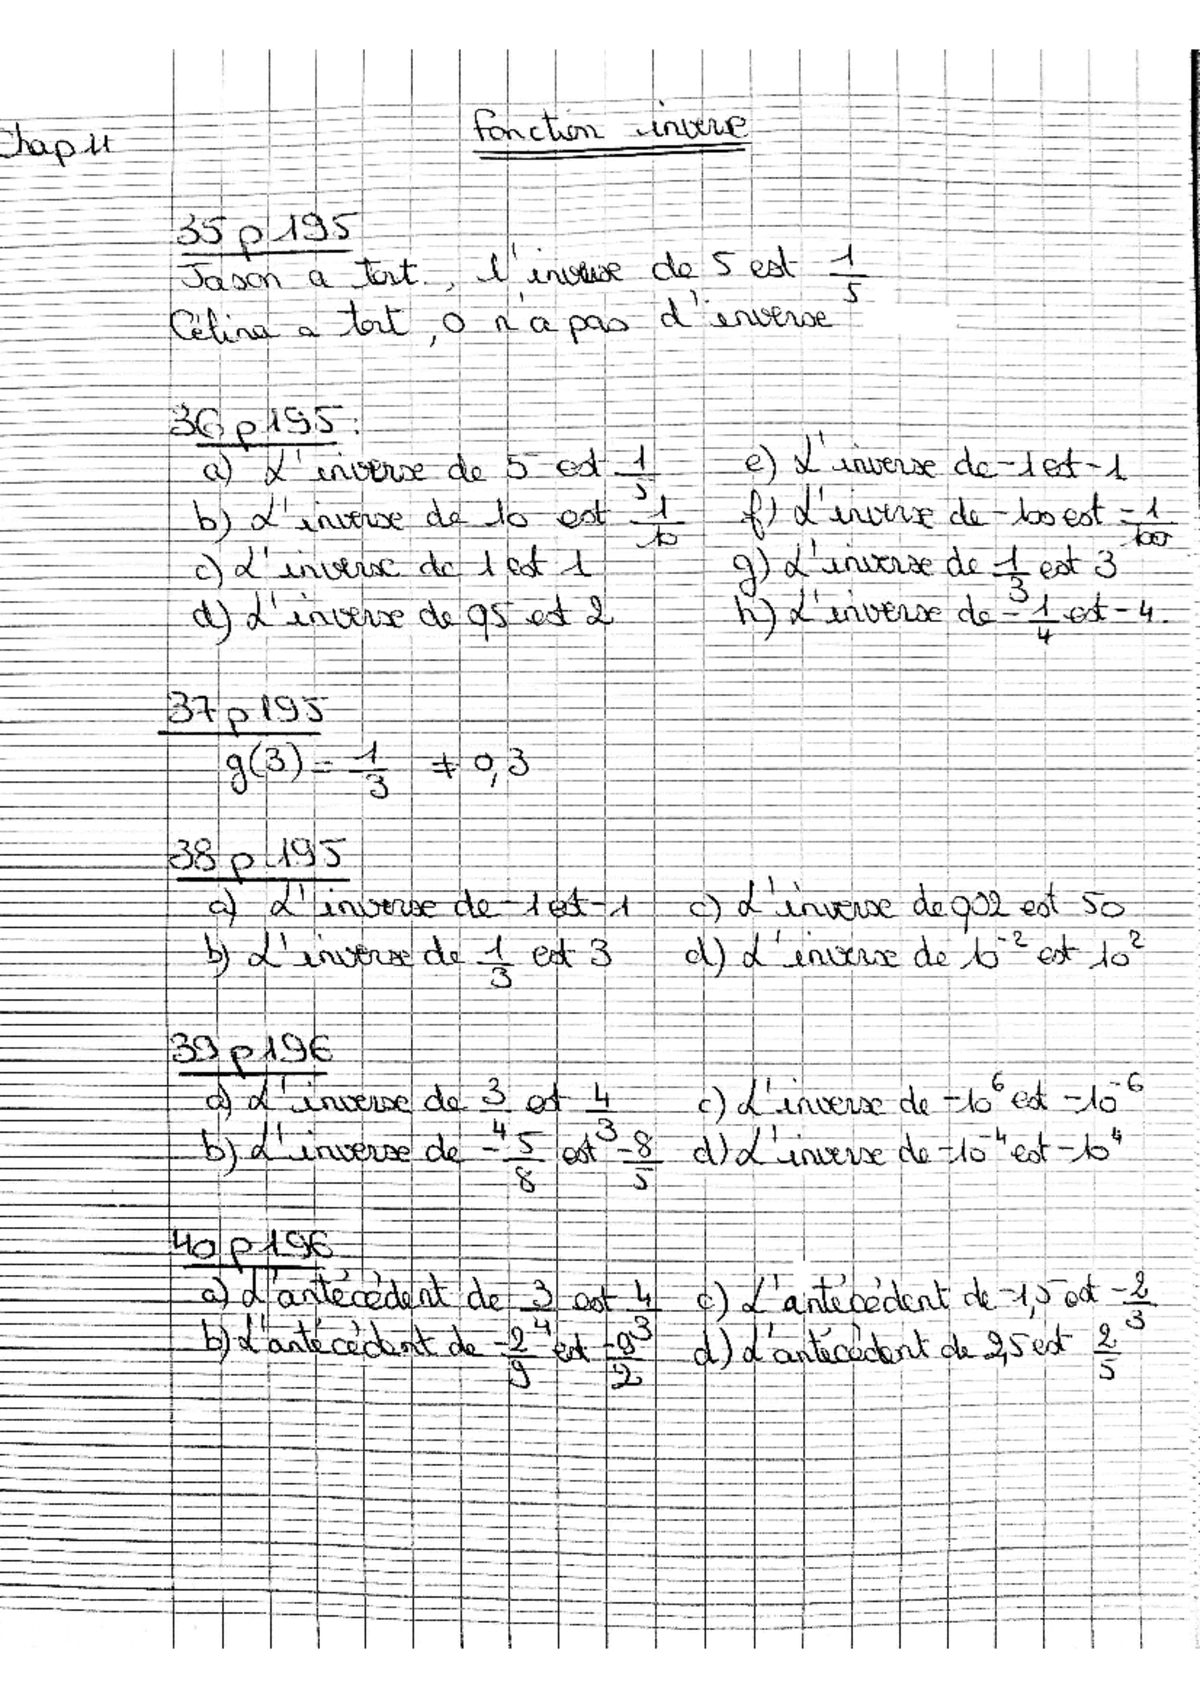 Chap 11
Fonction inverse
35 p 195
Jason a tort, l'inverse de 5 est 1/5
Célina a tort, 0 n'a pas d'inverse
36 p 195 :
a) L'inverse de 5 est 1/5
b) L'inverse de 10 est 1/10
c) L'inverse de 1 est 1
d) L'inverse de 0,5 est 2
e) L'inverse de -1 est -1
f) L'inverse de -100 est -1/100
g) L'inverse de 1/3 est 3
h) L'inverse de -1/4 est -4.
37 p 195
g(3) = 1/3 ≠ 0,3
38 p 195
a) L'inverse de -1 est -1
b) L'inverse de 1/3 est 3
c) L'inverse de 0,02 est 50
d) L'inverse de 10⁻² est 10²
39 p 196
a) L'inverse de 3/4 est 4/3
b) L'inverse de -5/8 est -8/5
c) L'inverse de -10⁶ est -10⁻⁶
d) L'inverse de -10⁻⁴ est -10⁴
40 p 196
a) L'antécédent de 3/4 est 4/3
b) L'antécédent de -2/9 est -9/2
c) L'antécédent de -1,5 est -2/3
d) L'antécédent de 2,5 est 2/5